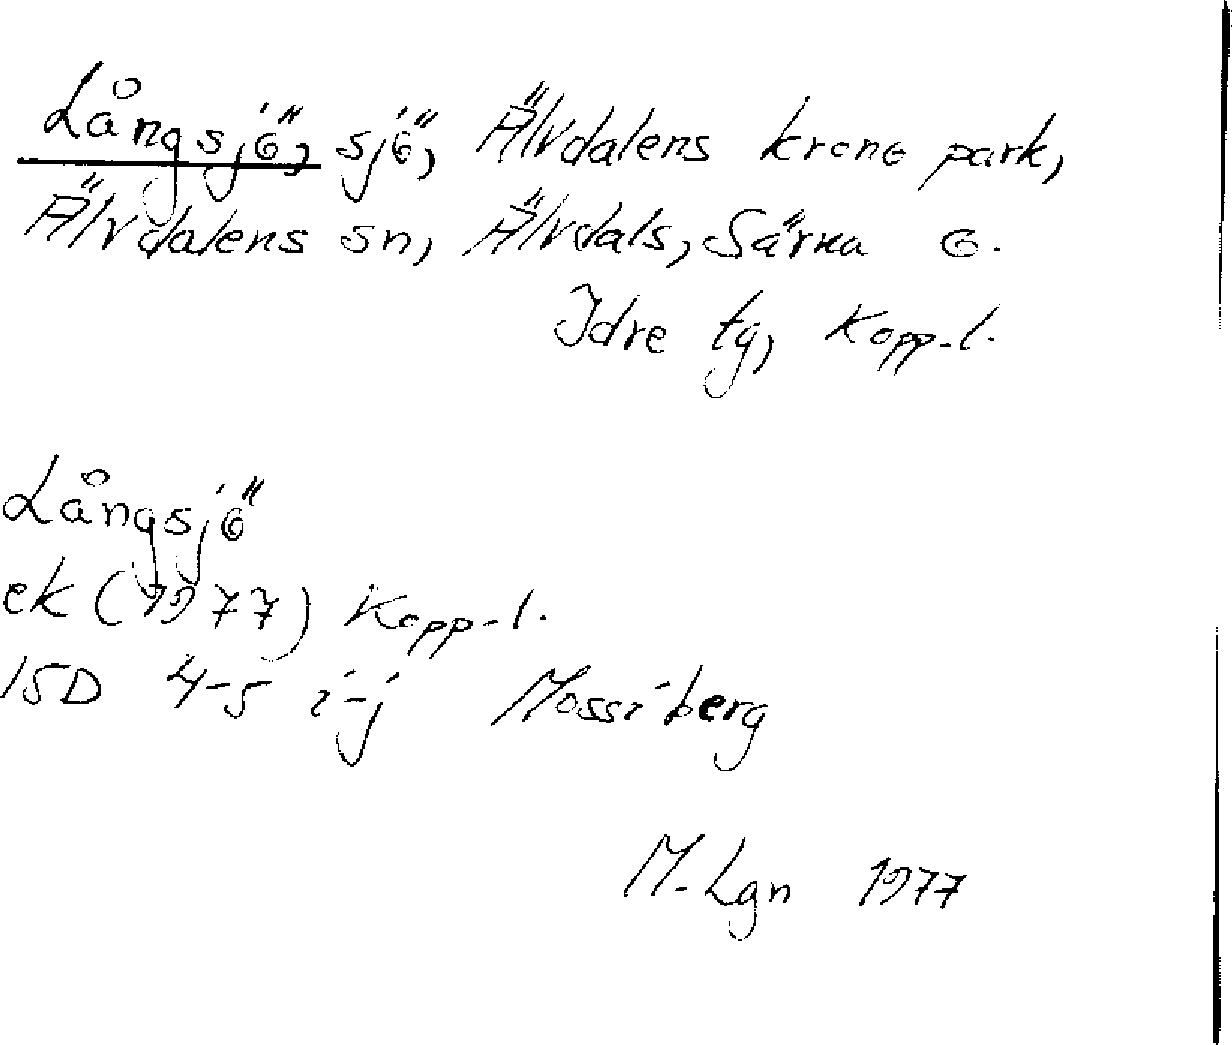 Långsjö, sjö, Älvdalens krono park,
Älvdalens sn, Älvdals, Särna o.
Idre tg, Kopp-l.
Långsjö
ek (1977) Kopp-l.
15D 4-5 i-j Mossiberg
M. Lgn 1977